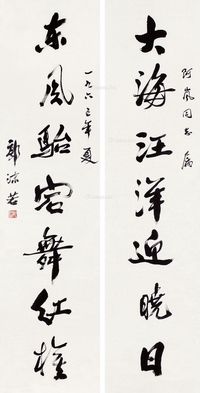 阿岚同志属
大海汪洋迎晓日
东风骀宕舞红旗
一九六三年夏
郭沫若